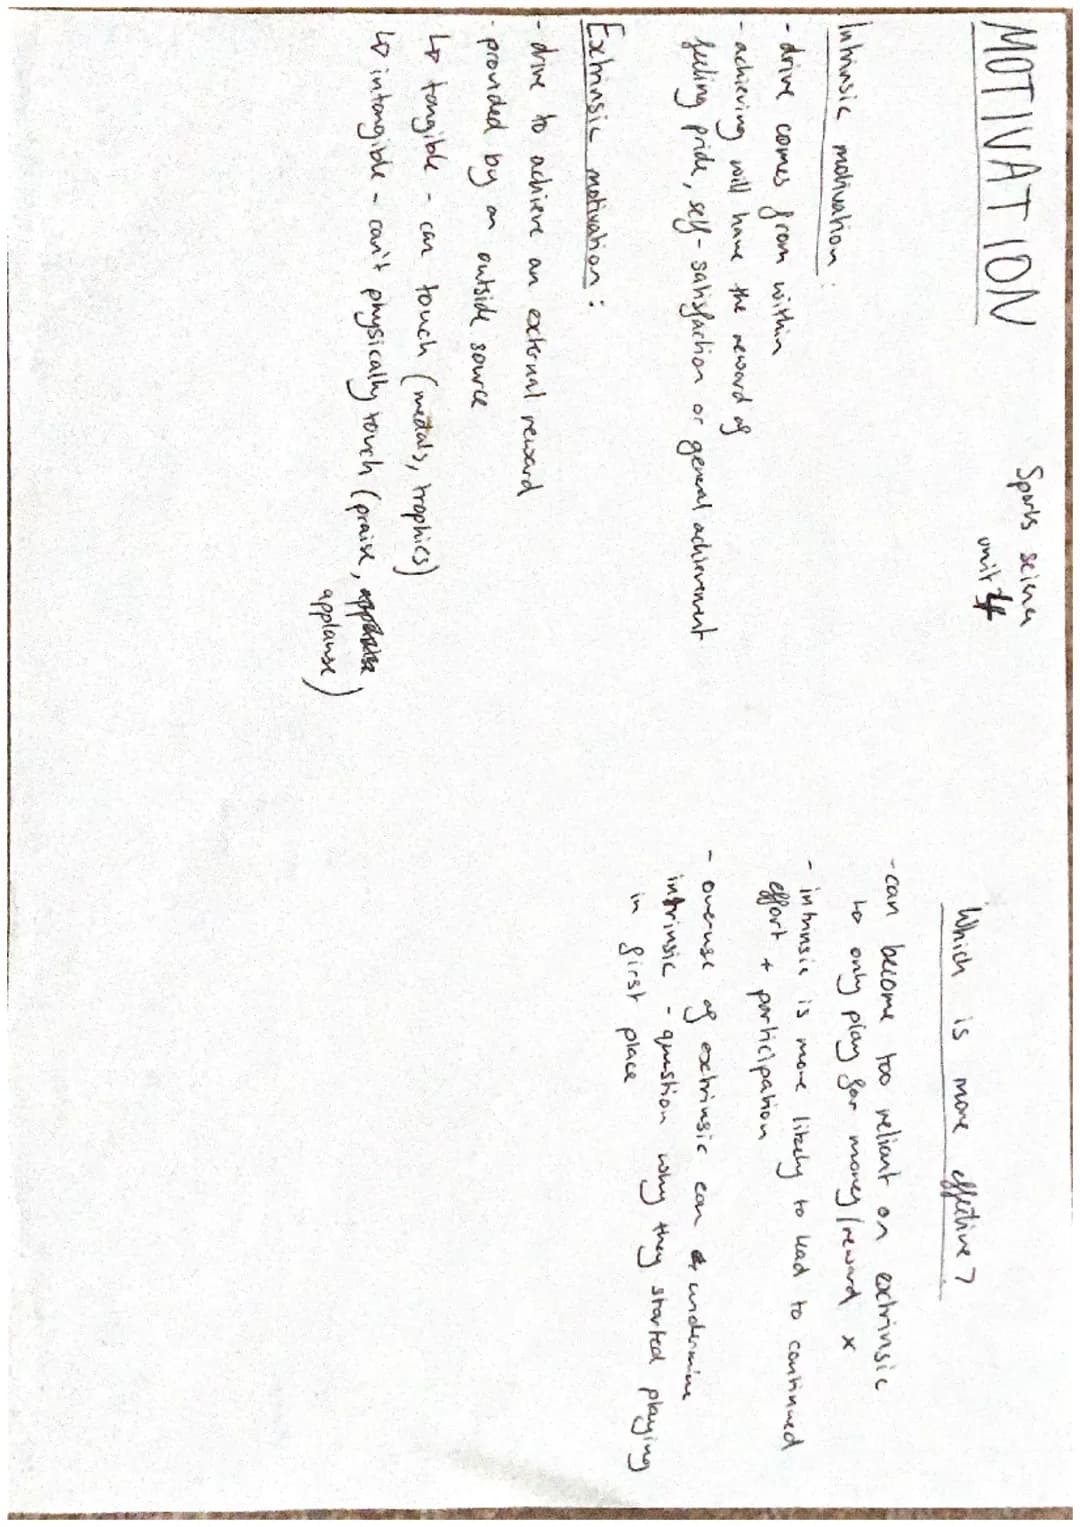 MOTIVATION
Sports science
unit 4
Intrinsic motivation :
- drive comes from within
- achieving will have the reward of
feeling pride, self-satisfaction or general achievement
Extrinsic motivation :
- drive to achieve an external reward
- provided by an outside source
↳ tangible - can touch (medals, trophies)
↳ intangible - can't physically touch (praise,
applause)
Which is more effective?
- can become too reliant on extrinsic
to only play for money/reward x
- intrinsic is more likely to lead to continued
effort + participation
- overuse of extrinsic can undermine
intrinsic - question why they started playing
in first place